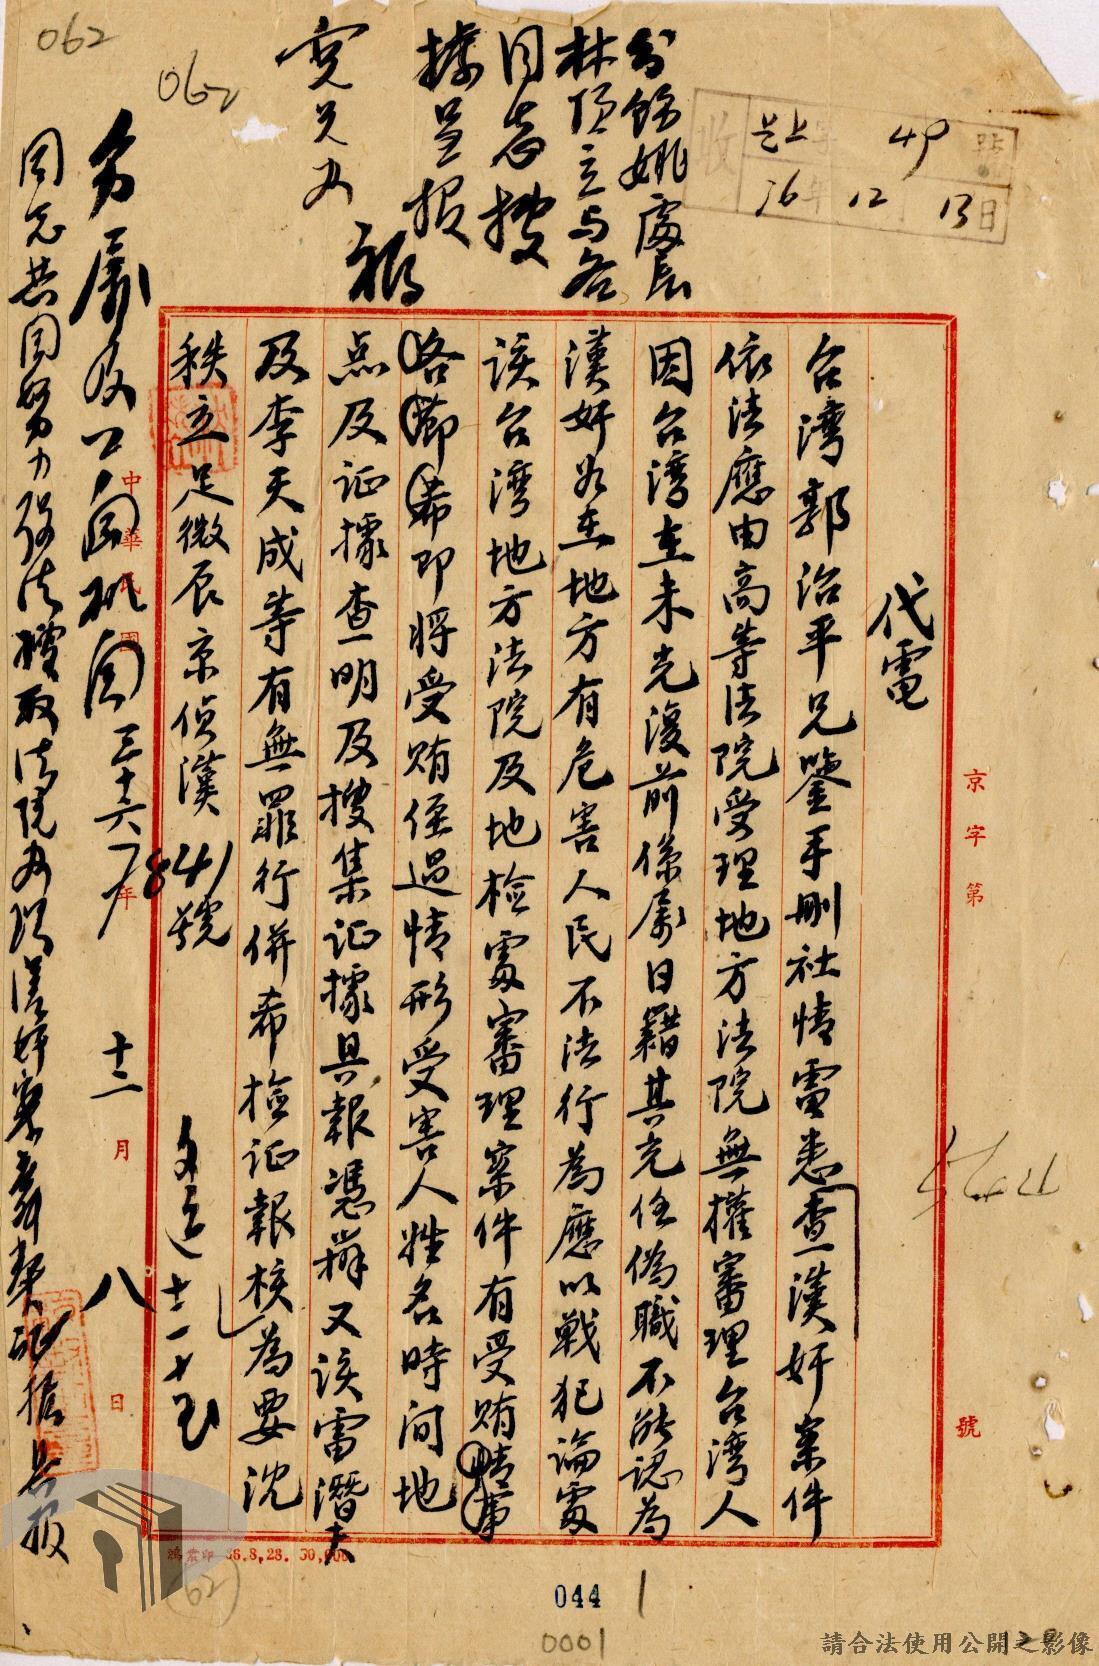 062
062
分飭姚處長
林頂立与各
同志搜
據呈报
台灣郭治平兄鑒手刪社情電悉查漢奸案件
依法應由高等法院受理地方法院無權審理台灣人
因台灣在未光復前係屬日籍其充任偽職不能認為
漢奸如在地方有危害人民不法行為應以戰犯論處
該台灣地方法院及地檢處審理案件有受賄情事
希即將受賄經過情形受害人姓名時間地
点及证據查明及搜集证據具報憑辦又該雷潛夫
及李天成等有無罪行併希檢证報核為要沈
秩立足微辰京偵漢841號
代電
京字第 號
收 字 49 號
36年 12月 13日
中華民國三十六年十二月八日
十二十
同志共同努力設法搜取法院
證據具报
鴻業印 36.8,28. 50,000
(62)
044
1
0001
請合法使用公開之影像